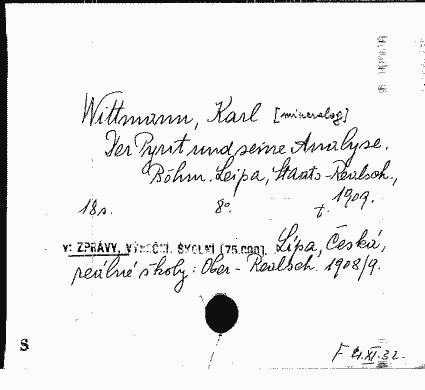 Wittmann, Karl [mineralog]
Der Pyrit und seine Analyse.
Böhm. Leipa, Staats-Realsch.,
1909.
18 s. 8°.
v: ZPRÁVY, VÝROČNÍ. ŠKOLNÍ (75.000). Lípa, Česká,
reálné školy: Ober-Realsch. 1908/9.
S
F 21.XI.32.